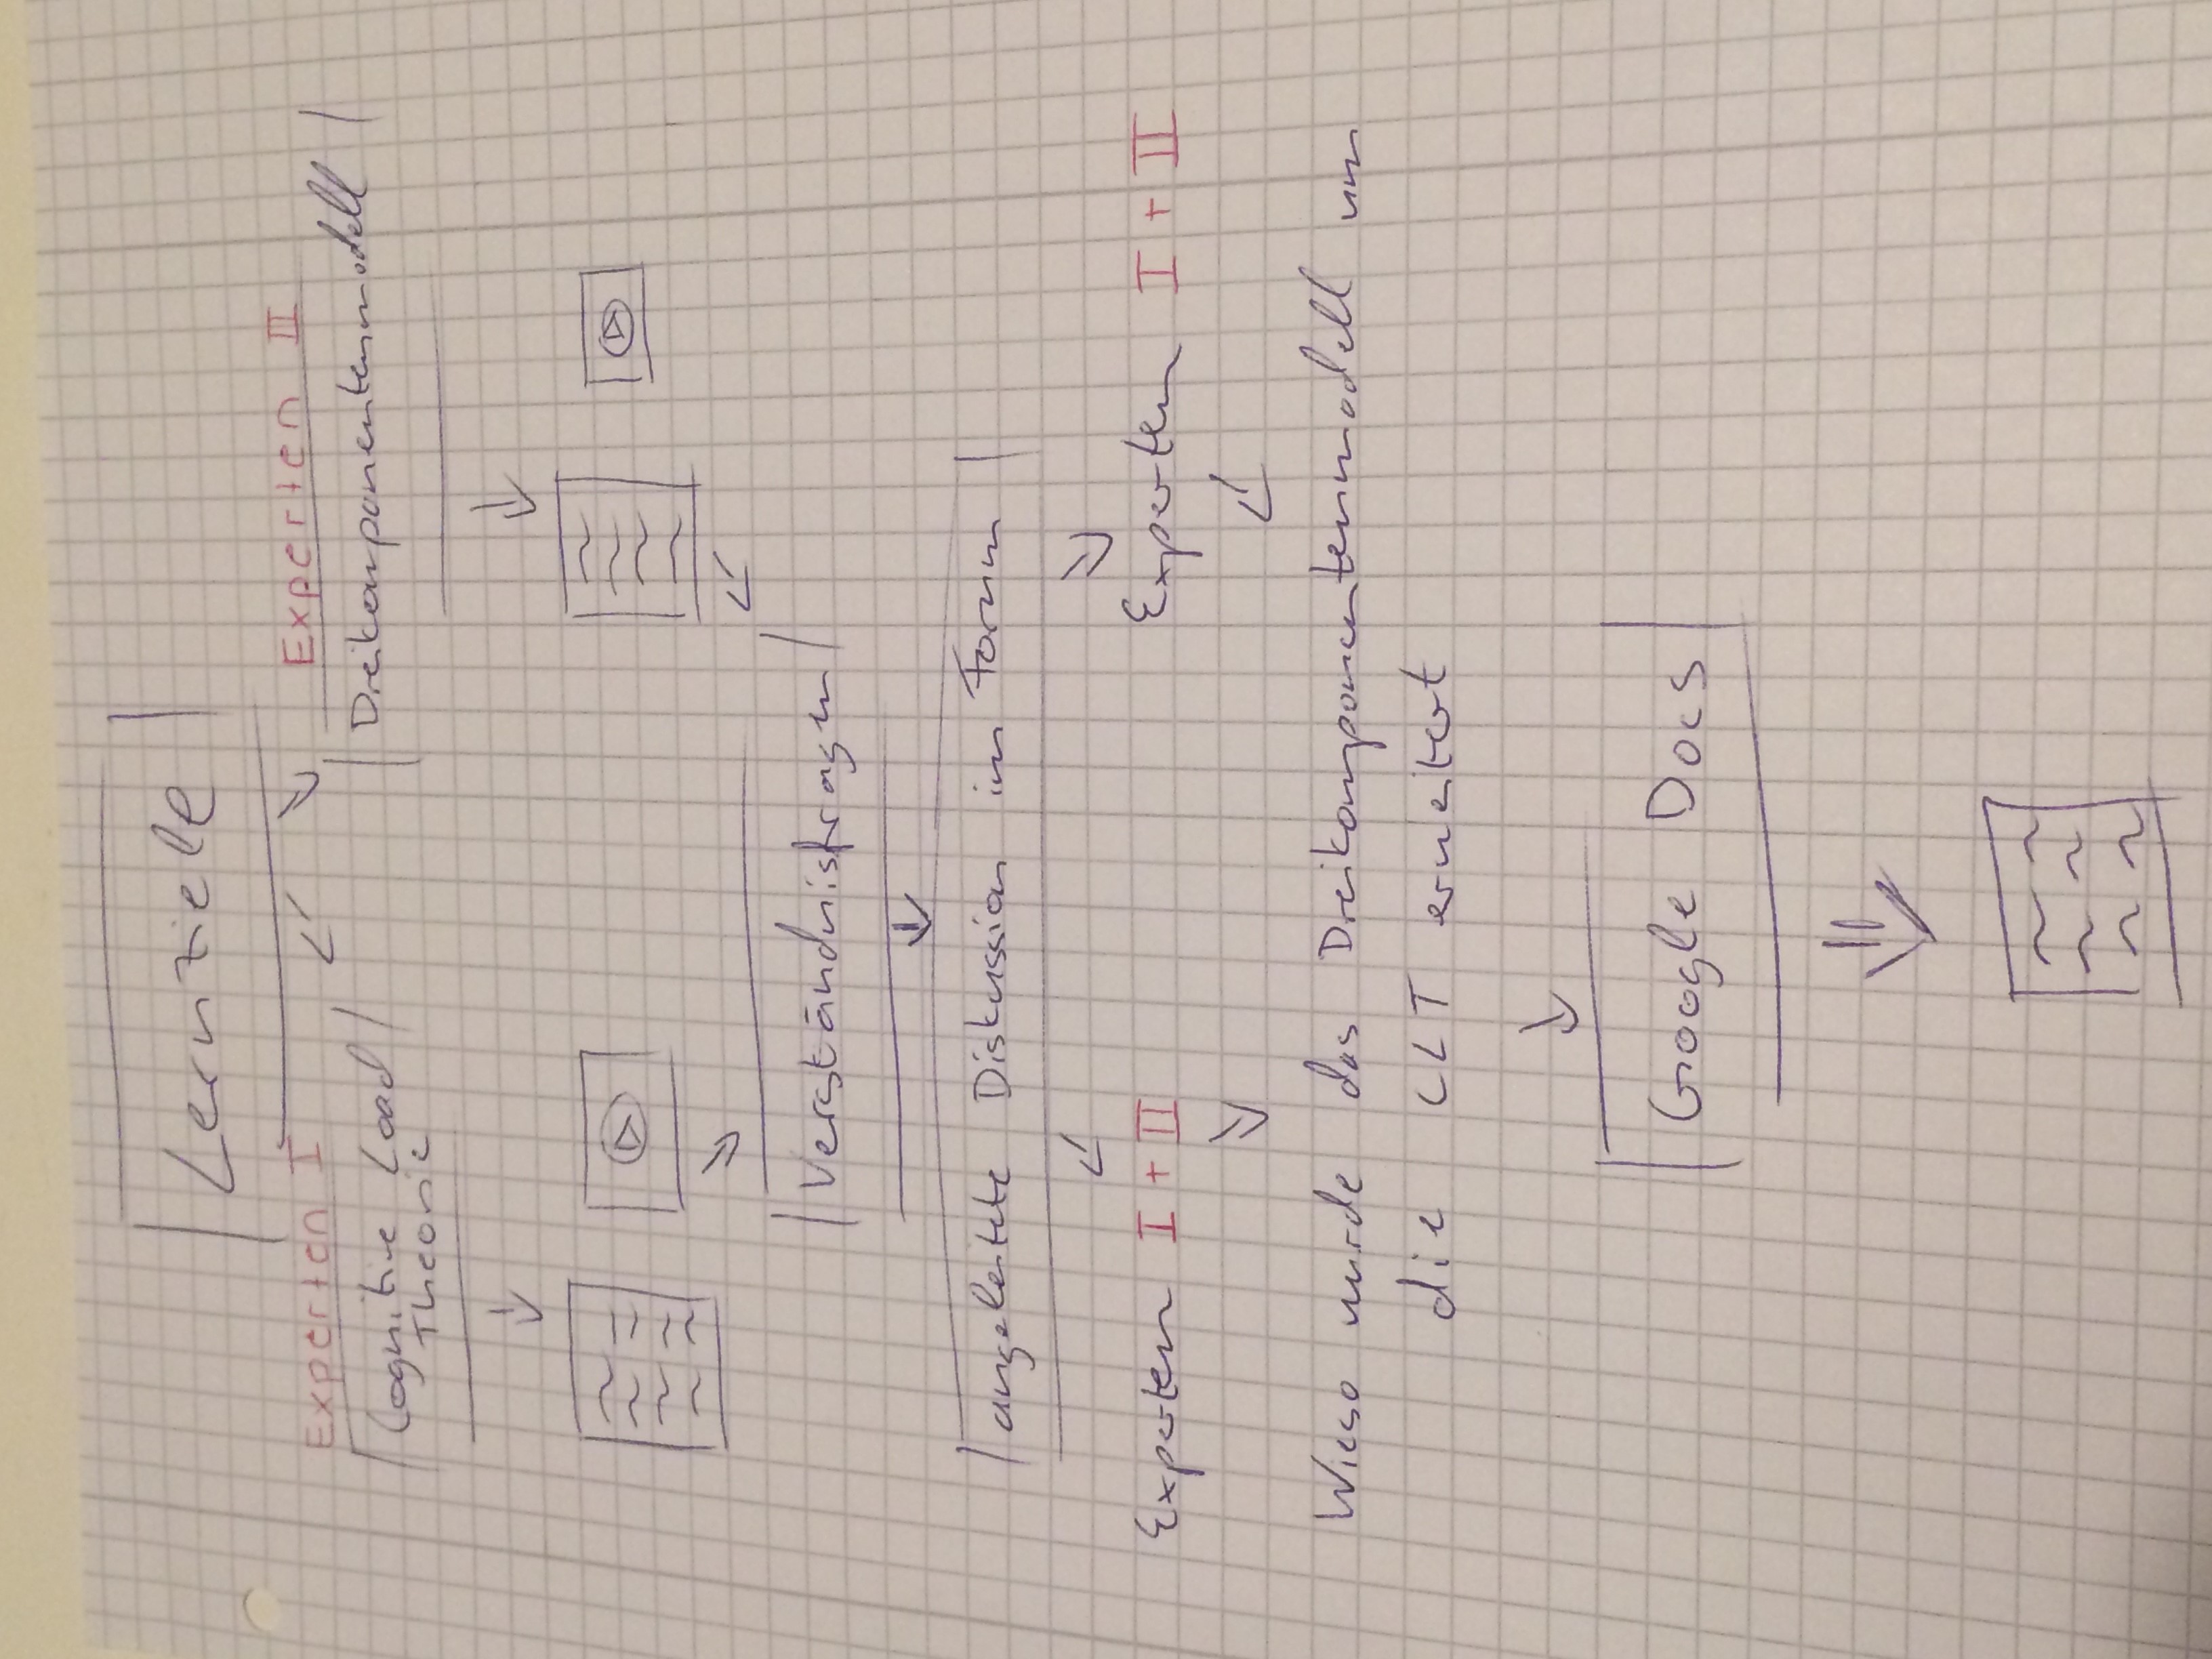 Lernziele
Experten I
Experten II
Cognitive Load
Theorie
Dreikomponentenmodell
Verständnisfragen
angeleitete Diskussion im Forum
Experten I + II
Experten I + II
Wieso wurde das Dreikomponentenmodell um
die CLT erweitert
Google Docs